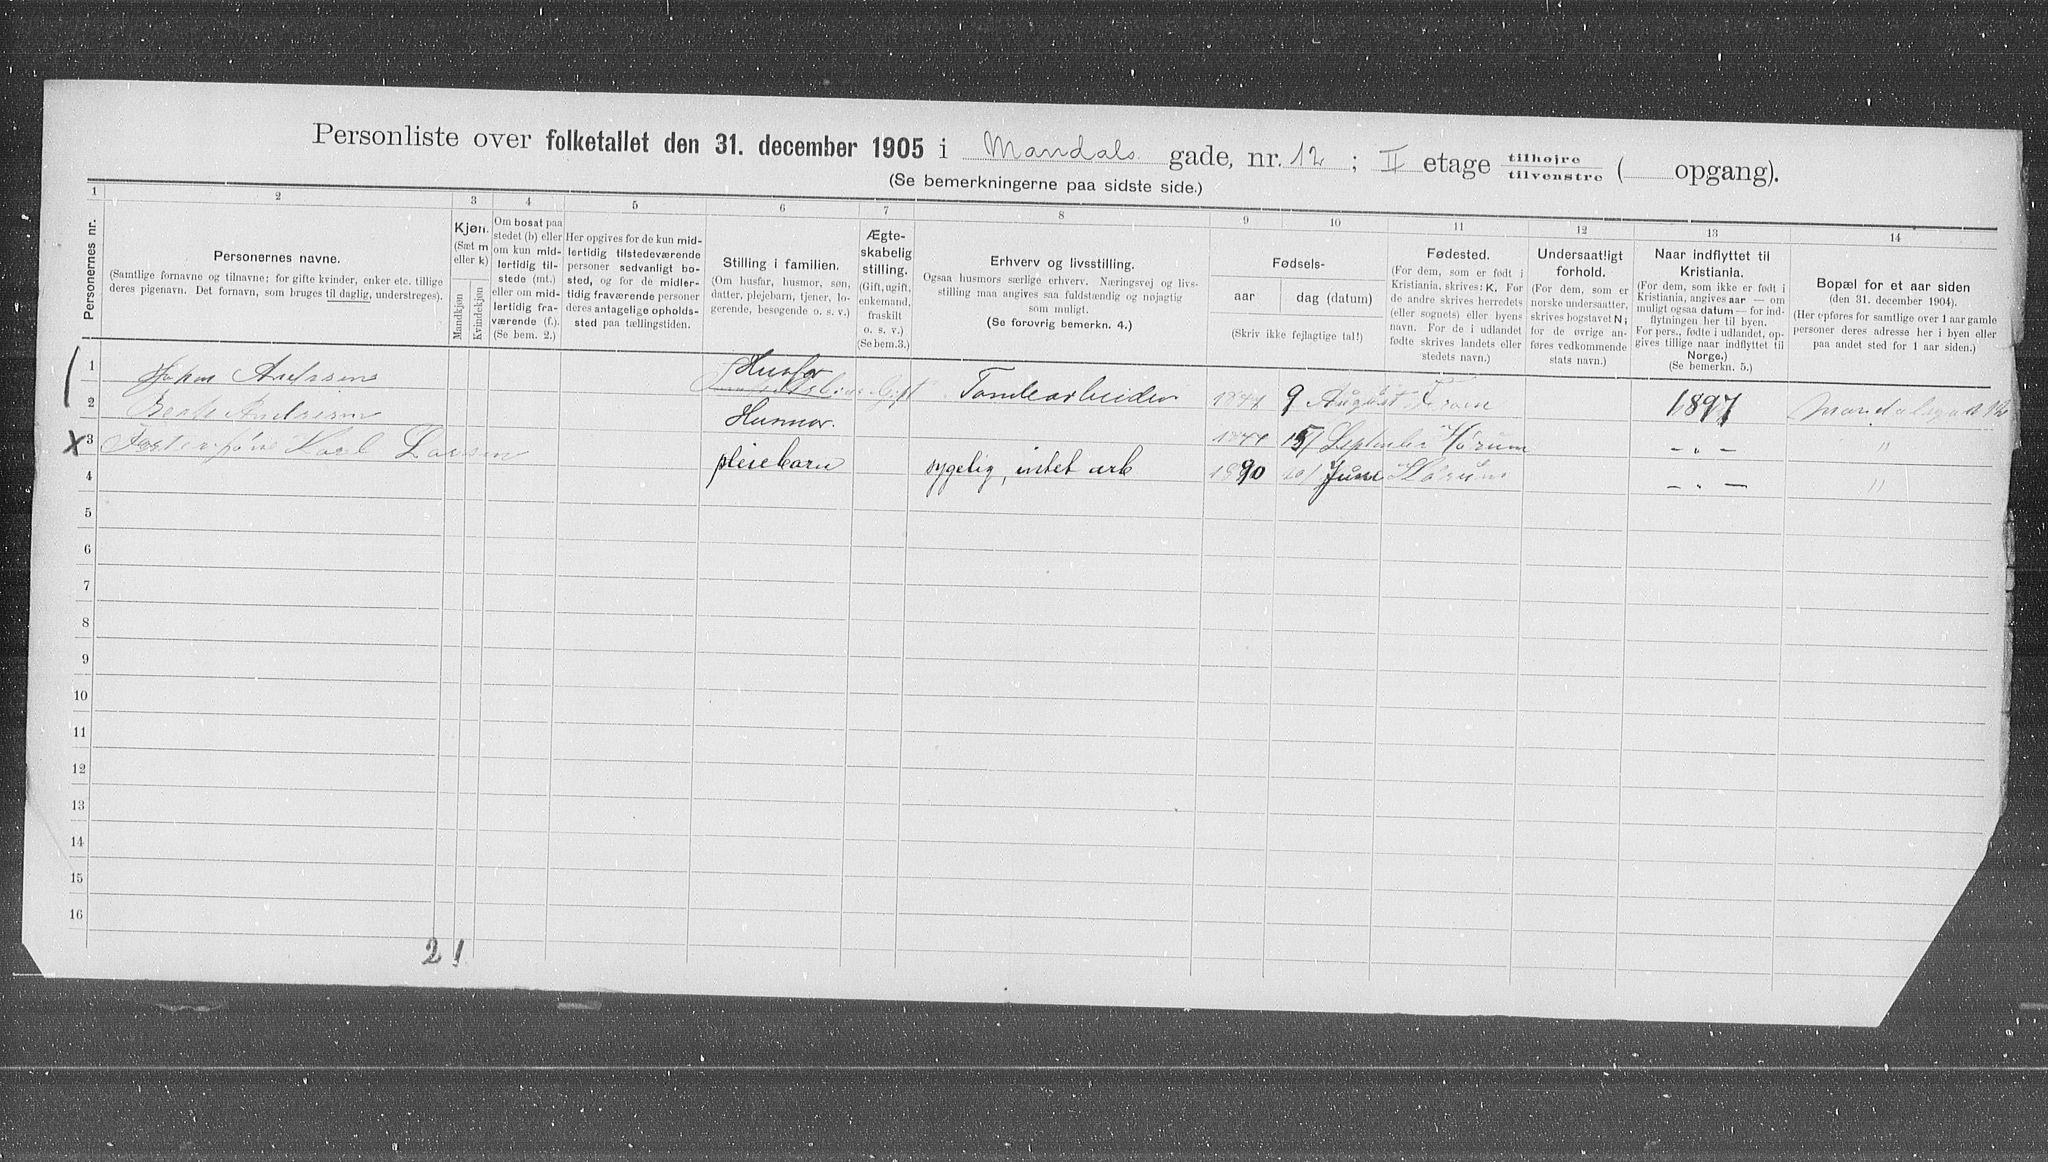 Personliste over folketallet den 31. december 1905 i Mandals gade, nr. 12; II etage tilhøjre tilvenstre ( opgang).
(Se bemerkningerne paa sidste side.)
1 2 3 4 5 6 7 8 9 10 11 12 13 14
Personernes nr.
Personernes navne.
(Samtlige fornavne og tilnavne; for gifte kvinder, enker etc. tillige
deres pigenavn. Det fornavn, som bruges til daglig, understreges).
Kjøn.
(Sæt m
eller k)
Mandkjøn
Kvindekjøn
Om bosat paa
stedet (b) eller
om kun mid-
lertidig til-
stede (mt.)
eller om mid-
lertidig fra-
værende (f.).
(Se bem. 2.)
Her opgives for de kun mid-
lertidig tilstedeværende
personer sedvanligt bo-
sted, og for de midler-
tidig fraværende personer
deres antagelige opholds-
sted paa tællingstiden.
Stilling i familien.
(Om husfar, husmor, søn,
datter, plejebarn, tjener, lo-
gerende, besøgende o. s. v.)
Ægte-
skabelig
stilling.
(Gift, ugift,
enkemand,
fraskilt
o. s. v.)
(Se bem. 3.)
Erhverv og livsstilling.
Ogsaa husmors særlige erhverv. Næringsvej og livs-
stilling maa angives saa fuldstændig og nøjagtig
som muligt.
(Se forøvrig bemerkn. 4.)
Fødsels-
aar
dag (datum)
(Skriv ikke fejlagtige tal!)
Fødested.
(For dem, som er født i
Kristiania, skrives: K. For
de andre skrives herredets
(eller sognets) eller byens
navn. For de i udlandet
fødte skrives landets eller
stedets navn.)
Undersaatligt
forhold.
(For dem, som er
norske undersaatter,
skrives bogstavet N;
for de øvrige an-
føres vedkommende
stats navn.)
Naar indflyttet til
Kristiania.
(For dem, som ikke er født i
Kristiania, angives aar — om
muligt ogsaa datum — for ind-
flytningen her til byen.
For pers., fødte i udlandet, op-
gives tillige naar indflyttet til
Norge.)
(Se bemerkn. 5.)
Bopæl for et aar siden
(den 31. december 1904).
(Her opføres for samtlige over 1 aar gamle
personer deres adresse her i byen eller
paa andet sted for 1 aar siden.)
1 Johan Andersen Husfar Gift Tomtearbeider 9 August 1897
2 Andersen Husmor 15/ September Hørum – " – "
3 X Karl Larsen pleiebarn sygelig, intet erh 1890 June – " – "
4
5
6
7
8
9
10
11
12
13
14
15
16
2 1